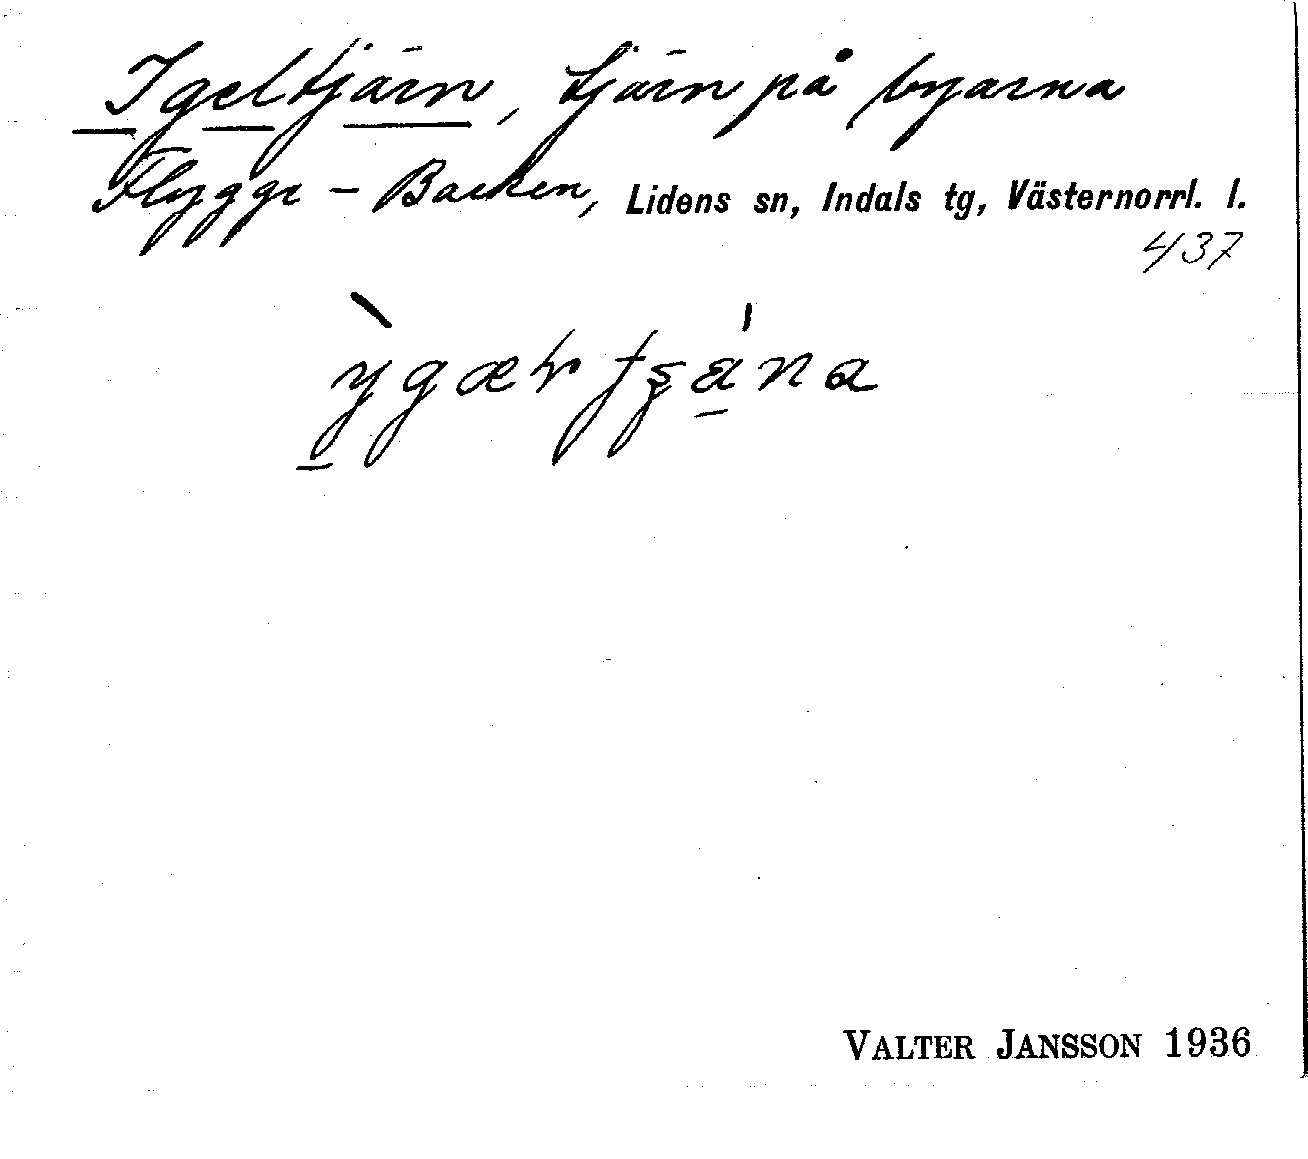 Igeltjärn, tjärn på byarna
Flygge - Backen, Lidens sn, Indals tg, Västernorrl. l.
437
VALTER JANSSON 1936